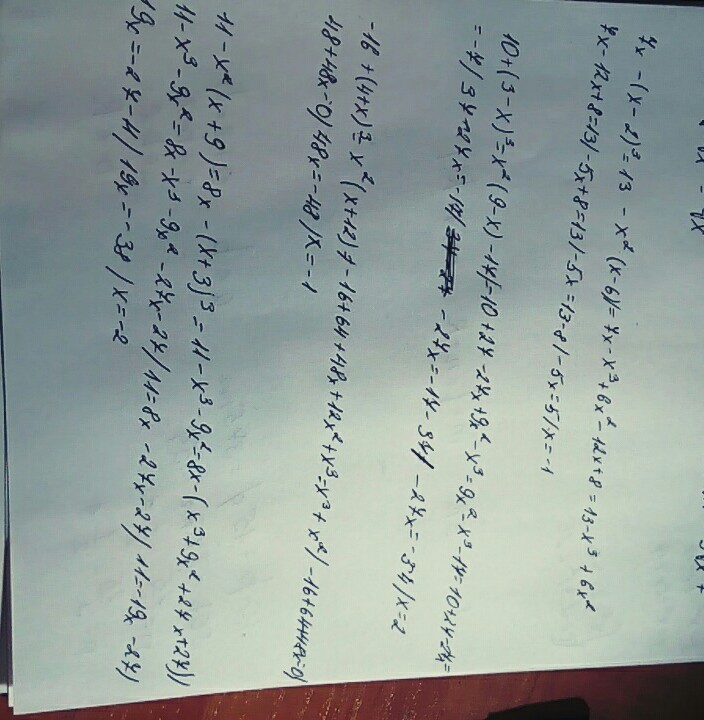 7x - (x - 2)³ = 13 - x² (x - 6) = 7x - x³ + 6x² - 12x + 8 = 13 - x³ + 6x²
7x - 12x + 8 = 13 / - 5x + 8 = 13 / - 5x = 13 - 8 / - 5x = 5 / x = -1
10 + (3 - x)³ = x² (9 - x) - 17 / = 10 + 27 - 27x + 9x² - x³ = 9x² - x³ - 17 = 10 + 27 - 27x =
= -17 / 37 - 27x = -17 / - 27x = -17 - 37 / - 27x = -54 / x = 2
-16 + (4 + x)³ = x² (x + 12) / - 16 + 64 + 48x + 12x² + x³ = x³ + x² / - 16 + 64 + 48x = 0 /
48 + 48x = 0 / 48x = - 48 / x = - 1
11 - x² (x + 9) = 8x - (x + 3)³ = 11 - x³ - 9x² = 8x - (x³ + 9x² + 27x + 27) /
11 - x³ - 9x² = 8x - x³ - 9x² - 27x - 27 / 11 = 8x - 27x - 27 / 11 = -19x - 27 /
19x = - 27 - 11 / 19x = - 38 / x = - 2